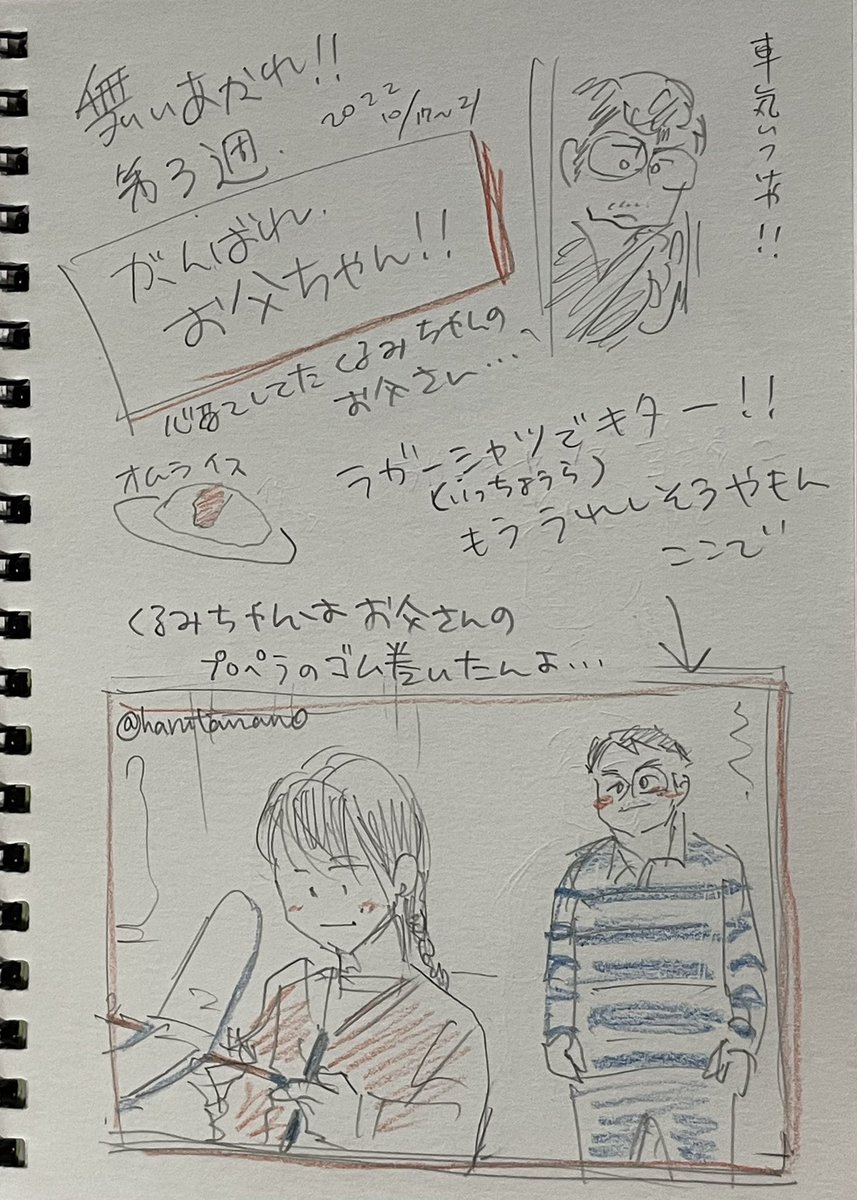 舞いあがれ!!
2022
10/17~21
第3週.
がんばれ.
お父ちゃん!!
車気いつけや!!
心配してた くるみちゃんの
お父さん…
オムライス
ラガーシャツでキター!!
(いっちょうら)
もううれしそうやもん
ここで
くるみちゃんはお父さんの
プロペラのゴム巻いたんよ…
@haru